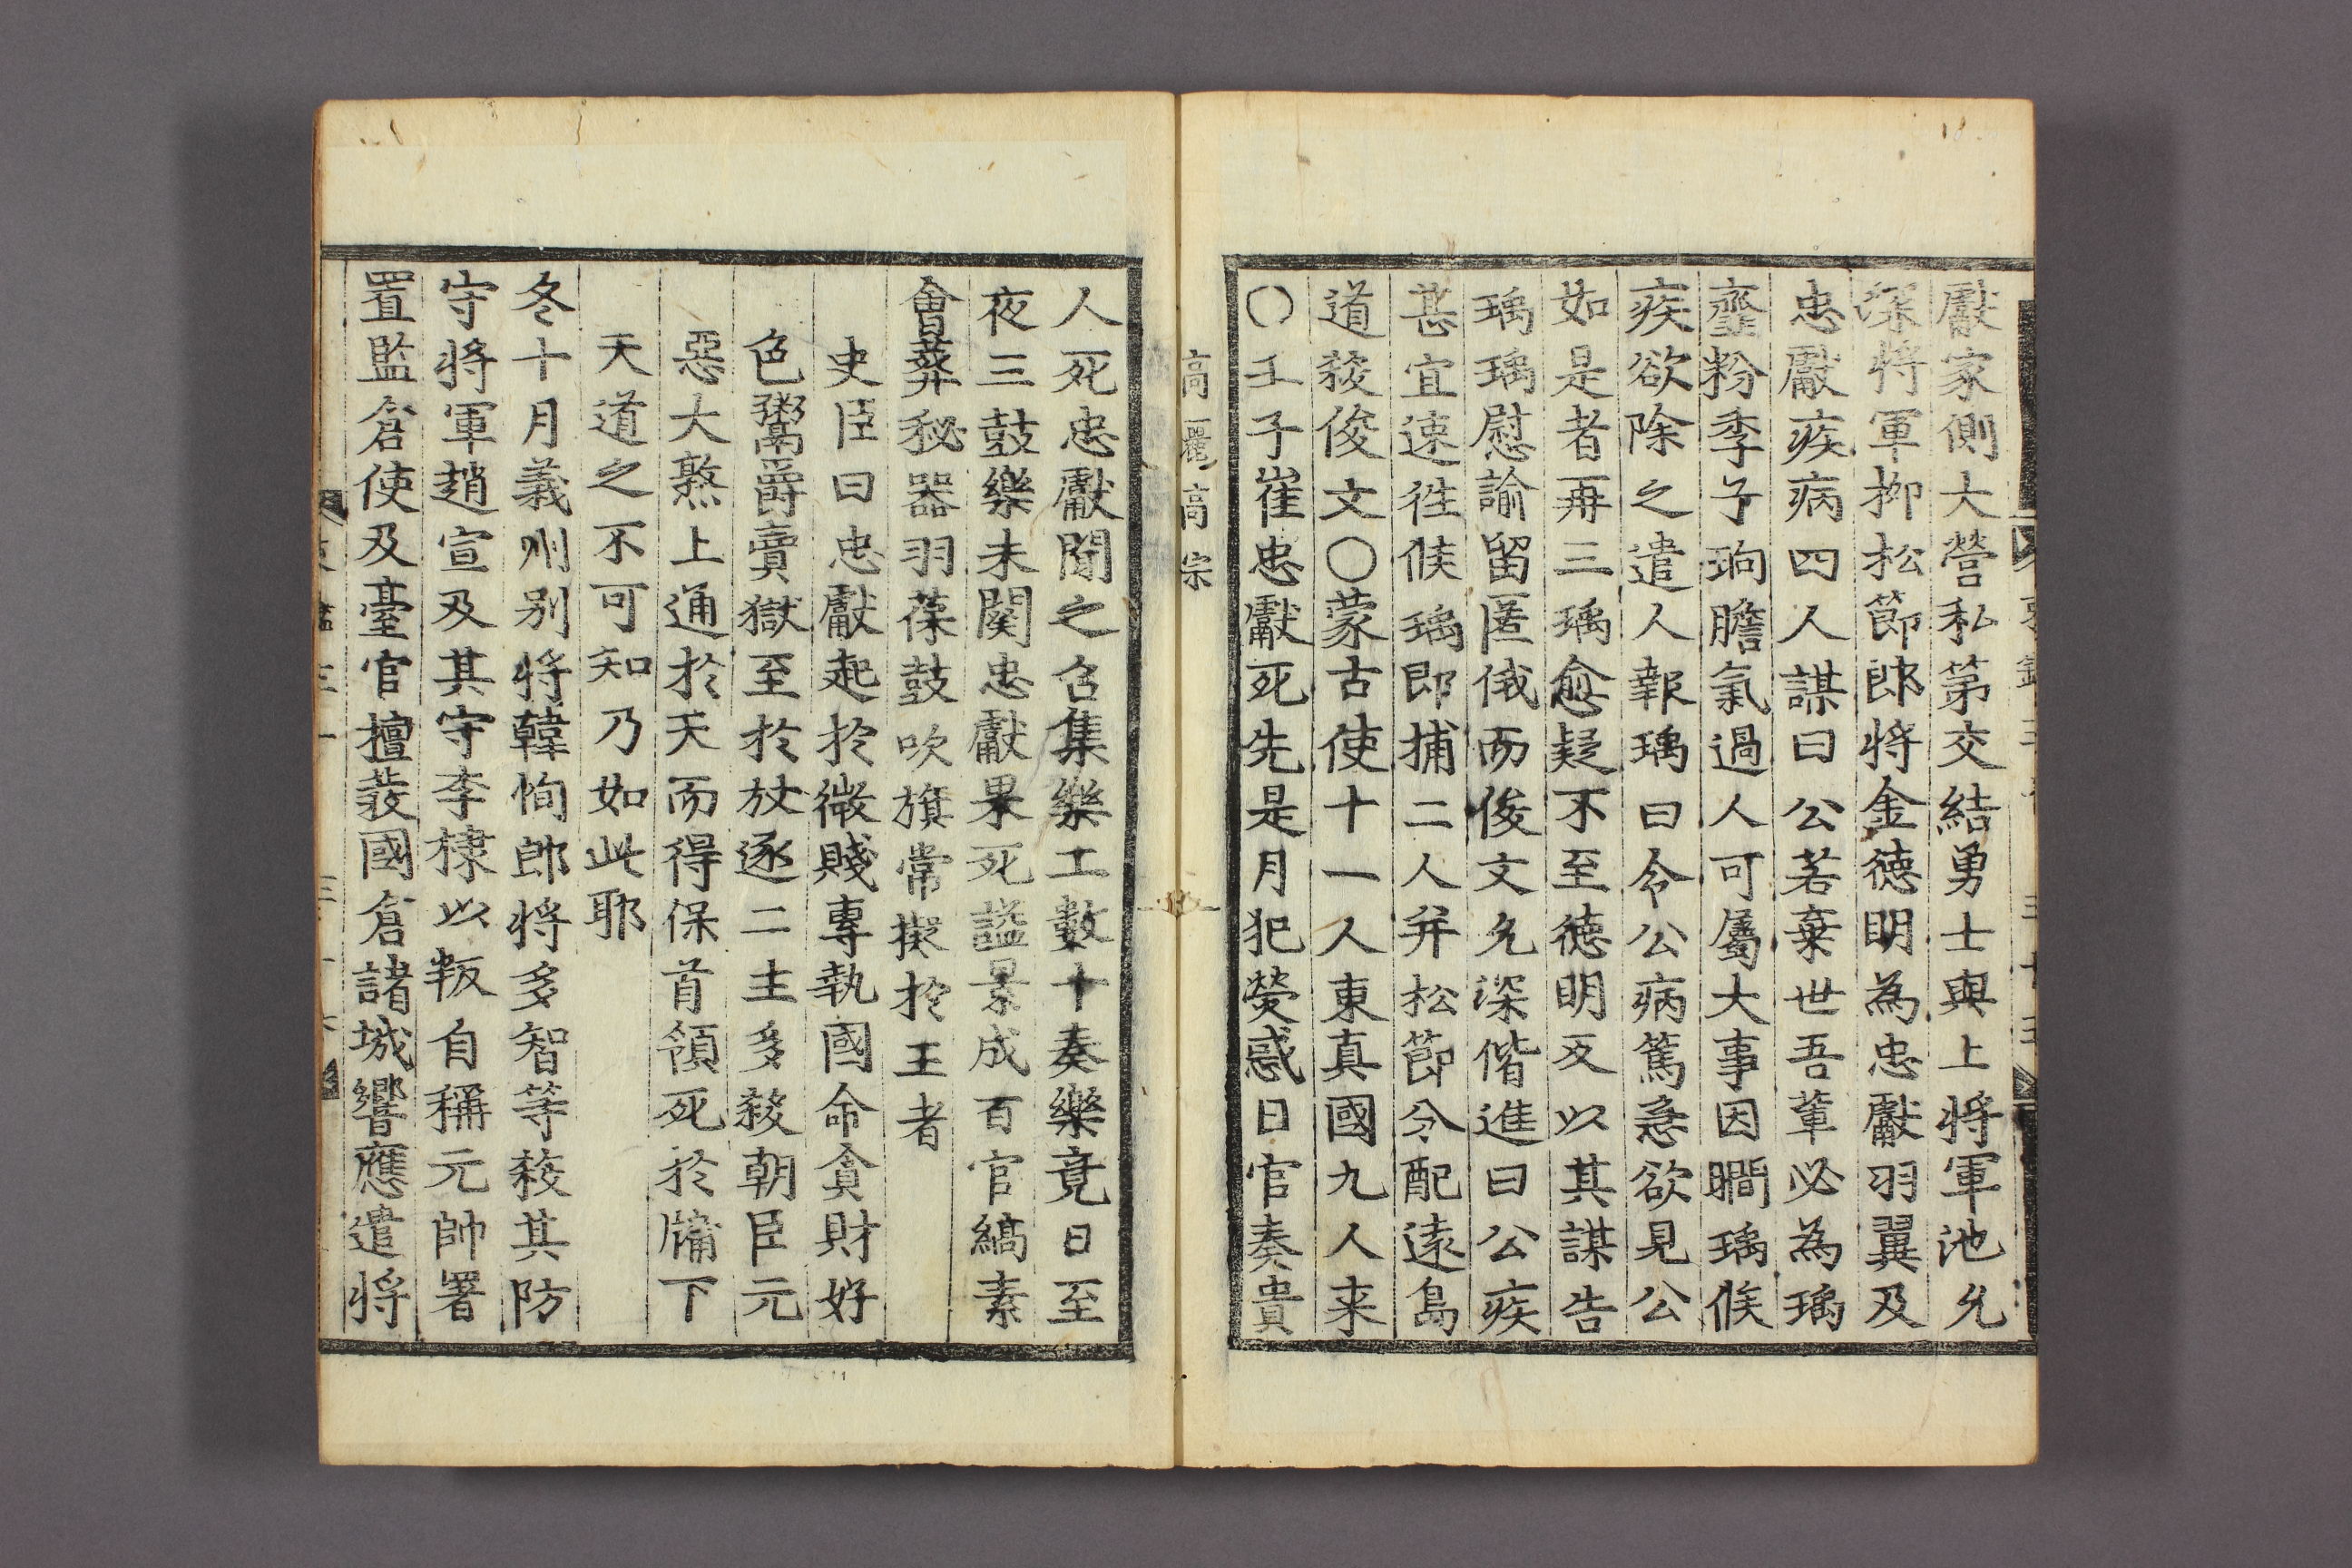 獻家側大營私第交結勇士與上將軍池允
深將軍柳松節郎將金德明為忠獻羽翼及
忠獻疾病四人謀曰公若棄世吾輩必為瑀
虀粉季子珦膽氣過人可屬大事因瞷瑀候
疾欲除之遣人報瑀曰令公病篤急欲見公
如是者再三瑀愈疑不至德明反以其謀告
瑀瑀慰諭留匿俄而俊文允深偕進曰公疾
甚宜速徃候瑀即捕二人并松節分配遠島
道殺俊文○蒙古使十一人東真國九人来
○壬子崔忠獻死先是月犯熒惑日官奏貴
高麗高宗
人死忠獻聞之召集樂工數十奏樂竟日至
夜三鼓樂未闋忠獻果死謚景成百官縞素
會葬秘器羽葆鼓吹旗常擬於王者
史臣曰忠獻起於微賤專執國命貪財好
色鬻爵賣獄至於放逐二主多殺朝臣元
惡大憝上通於天而得保首領死於牖下
天道之不可知乃如此耶
冬十月義州别將韓恂郎將多智等殺其防
守將軍趙宣及其守李棣以叛自稱元帥署
置監倉使及臺官擅發國倉諸城響應遣將